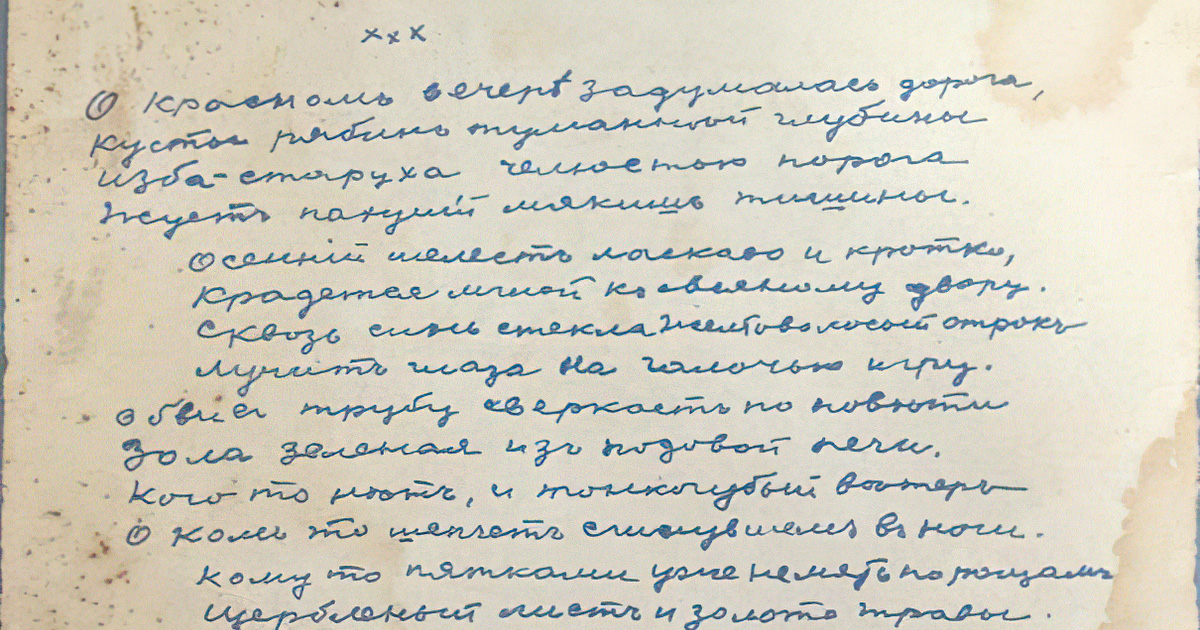 ххх
О красномъ вечерѣ задумалась дорога,
кусты рябинъ туманной глубины
изба-старуха челюстью порога
Жуетъ пахучій мякишь тишины.
Осенній шелестъ ласково и кротко,
Крадется мглой къ овсяному двору.
Сквозь синь стекла желтоволосый отрокъ
Лучитъ глаза на галочью игру.
обвив трубу сверкаетъ по повѣти
Зола зеленая изъ подовой печи.
Кого то нѣтъ, и тонкогубый вѣтеръ
О комъ то шепчетъ сгинувшемъ въ ночи.
Кому то пятками уже не мять по рощамъ
Щербленый листъ и золото травы.